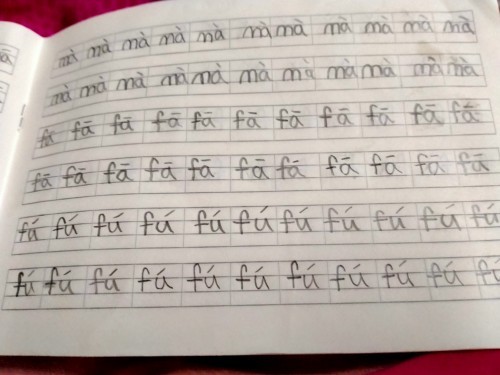 mà mà mà mà mà mà mà mà mà mà mà
mà mà mà mà mà mà mà mà mà mà mà
fā fā fā fā fā fā fā fā fā fā fā
fā fā fā fā fā fā fā fā fā fā fā
fú fú fú fú fú fú fú fú fú fú fú
fú fú fú fú fú fú fú fú fú fú